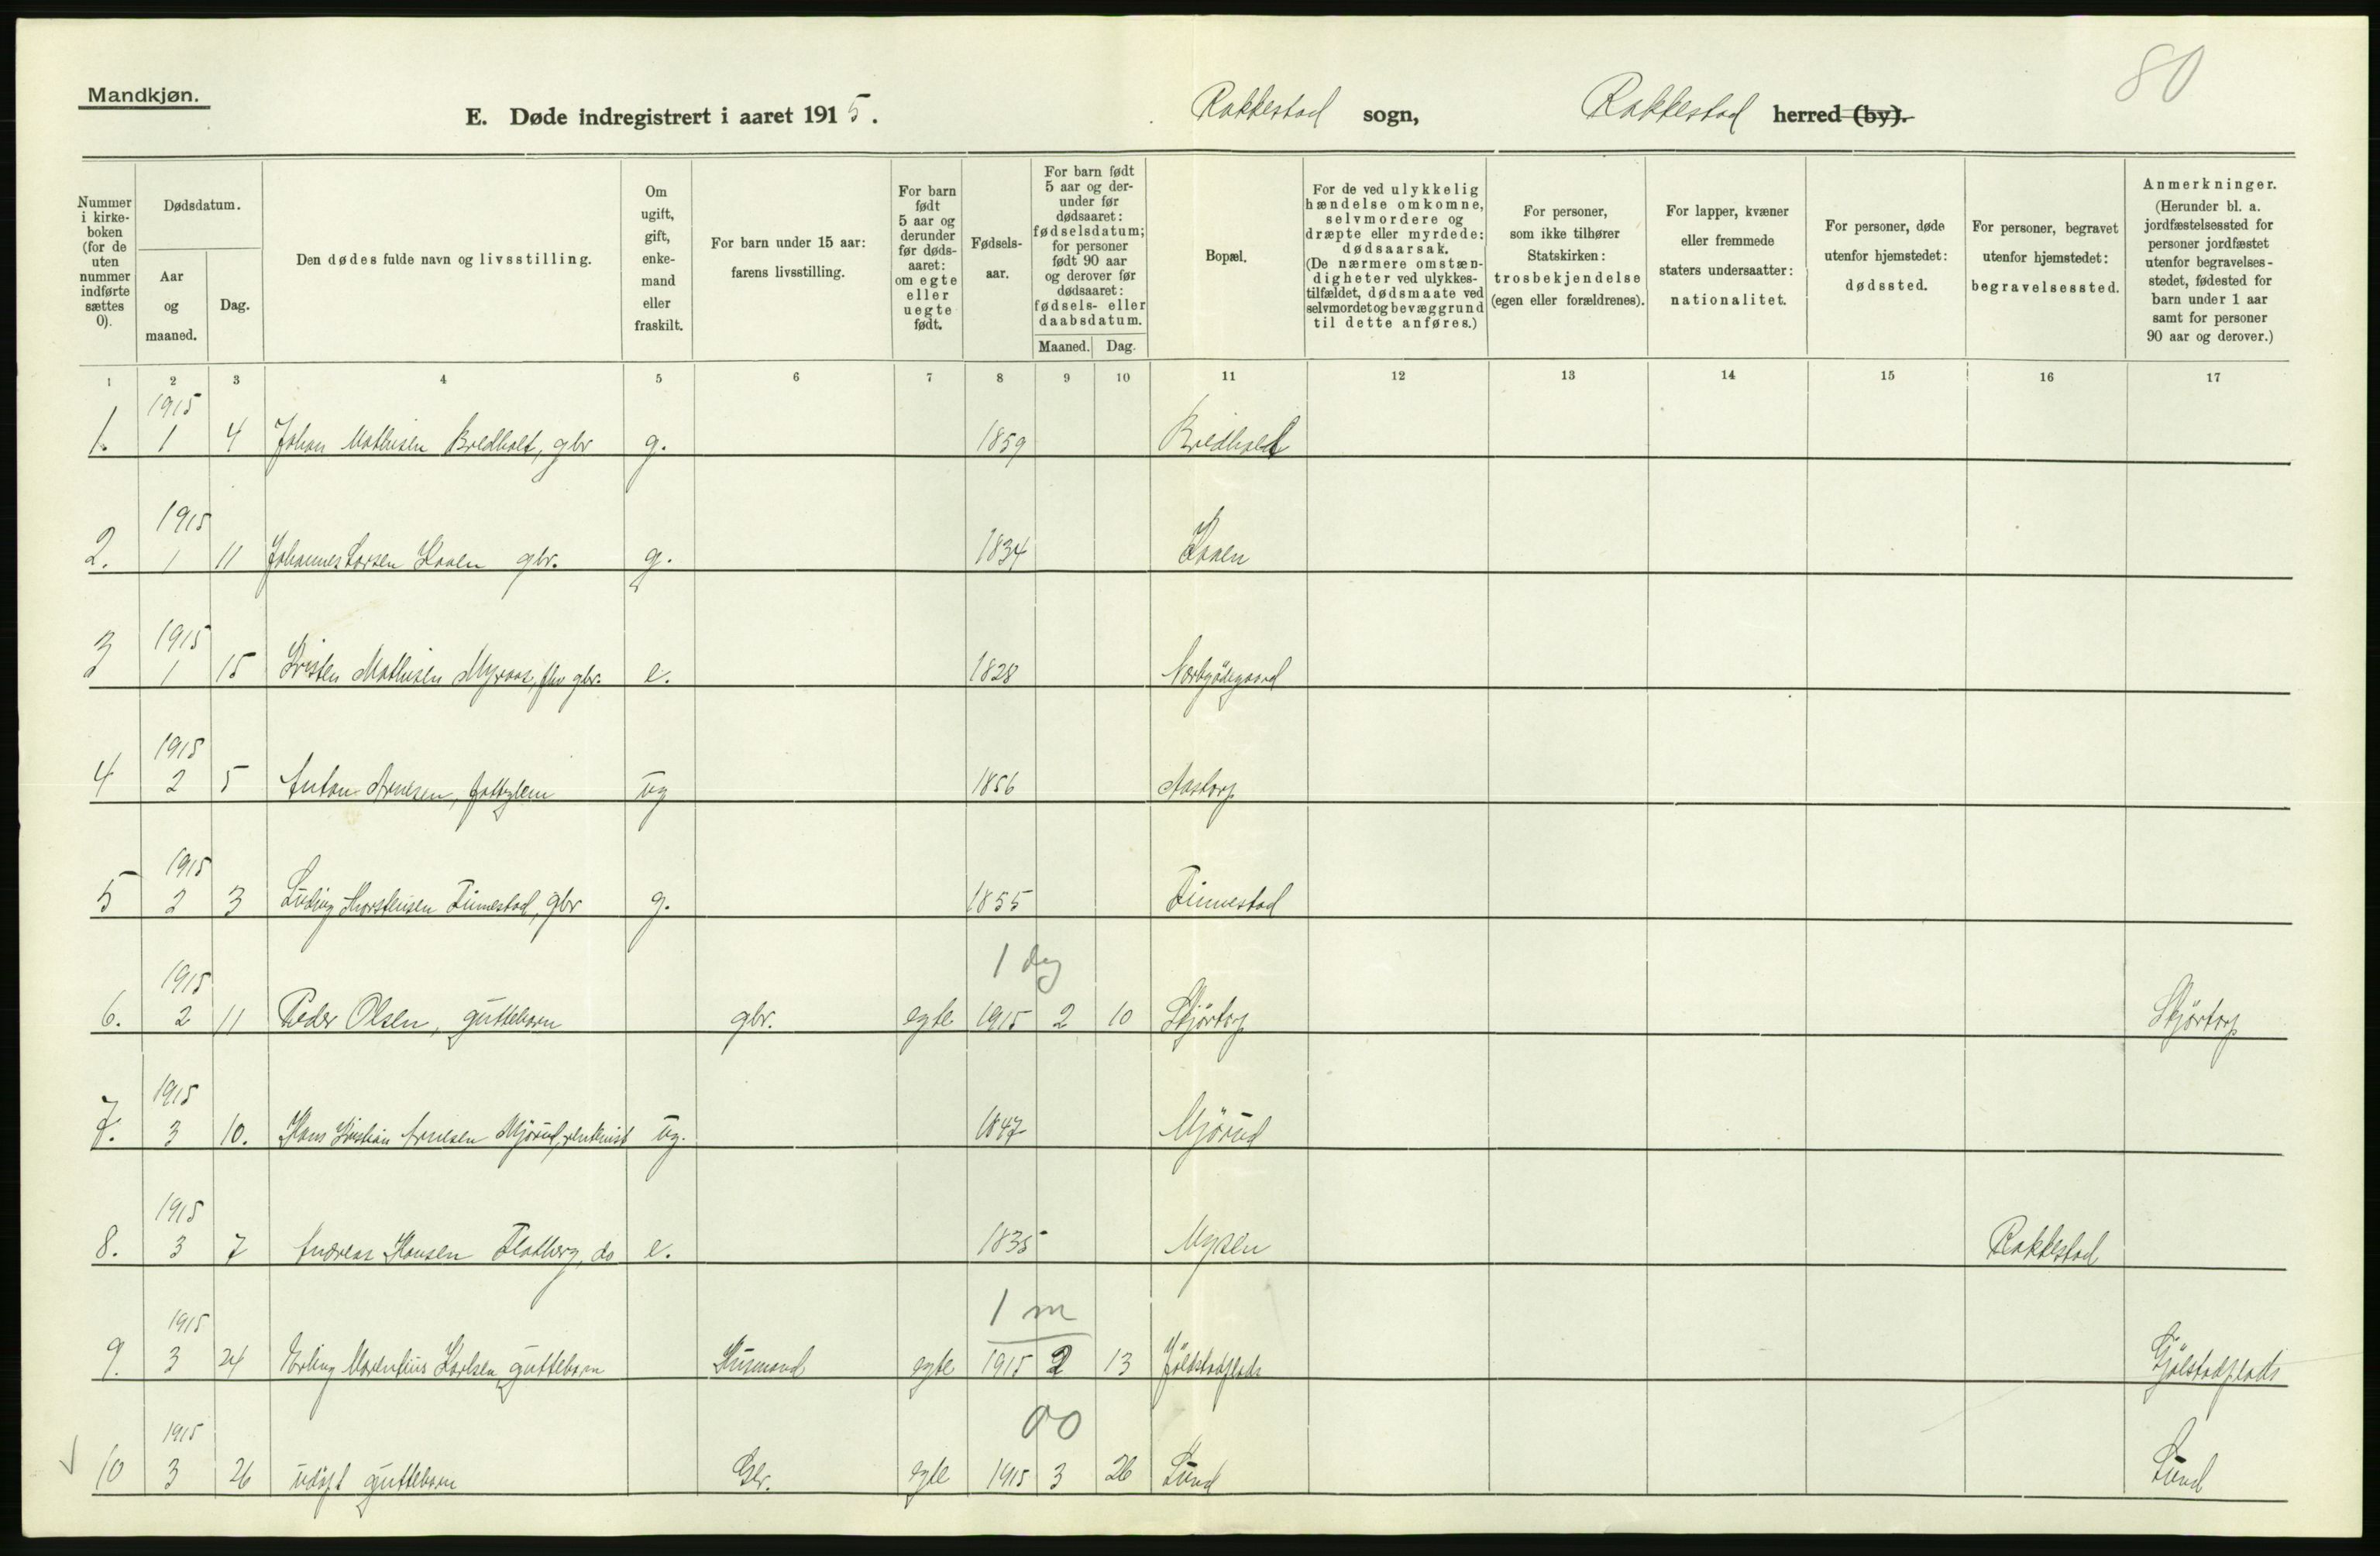 Mandkjøn.
80
E. Døde indregistrert i aaret 1915. Rakkestad sogn, Rakkestad herred (by).
Nummer i kirkeboken (for de uten nummer indførte sættes 0).
Dødsdatum.
Aar og maaned.
Dag.
Den dødes fulde navn og livsstilling.
Om ugift, gift, enkemand eller fraskilt.
For barn under 15 aar: farens livsstilling.
For barn født 5 aar og derunder før dødsaaret: om egte eller uegte født.
Fødselsaar.
For barn født 5 aar og derunder før dødsaaret: fødselsdatum; for personer født 90 aar og derover før dødsaaret: fødsels- eller daabsdatum.
Maaned. Dag.
Bopæl.
For de ved ulykkelig hændelse omkomne, selvmordere og dræpte eller myrdede: dødsaarsak. (De nærmere omstændigheter ved ulykkestilfældet, dødsmaate ved selvmordet og bevæggrund til dette anføres.)
For personer, som ikke tilhører Statskirken: trosbekjendelse (egen eller forældrenes).
For lapper, kvæner eller fremmede staters undersaatter: nationalitet.
For personer, døde utenfor hjemstedet: dødssted.
For personer, begravet utenfor hjemstedet: begravelsessted.
Anmerkninger. (Herunder bl. a. jordfæstelsessted for personer jordfæstet utenfor begravelsesstedet, fødested for barn under 1 aar samt for personer 90 aar og derover.)
1 2 3 4 5 6 7 8 9 10 11 12 13 14 15 16 17
1915
1. 1 4 Johan Mathisen Bredholt, gbr g. 1859 Bredholt
1915
2. 1 11 Johannes Larsen Kaaen gbr. g. 1834 Kaaen
1915
3 1 15 Kristen Mathisen Myraas, fhv gbr. e. 1828 Nærbyødegaard
1915
4 2 5 Anton Arnesen, fattiglem ug 1856 Aastorp
1915
5 2 3 Ludvig Thorstensen Finnestad, gbr g. 1855 Finnestad
1 dag
1915
6. 2 11 Peder Olsen, guttebarn gbr. egte 1915 2 10 Skjørtorp Skjørtorp
1915
7. 3 10. Hans Kristian Arnesen Mjørud, rentenist ug. 1847 Mjørud
1915
8. 3 7 Andreas Hansen Flatberg, do e. 1835 Mysen Rakkestad
1 m
1915
9. 3 24 Erling Karlsen, guttebarn Husmand egte 1915 2 13 Gjølstadplads
00
1915
10 3 26 udøpt guttebarn Gbr. egte 1915 3 26 Lund Lund